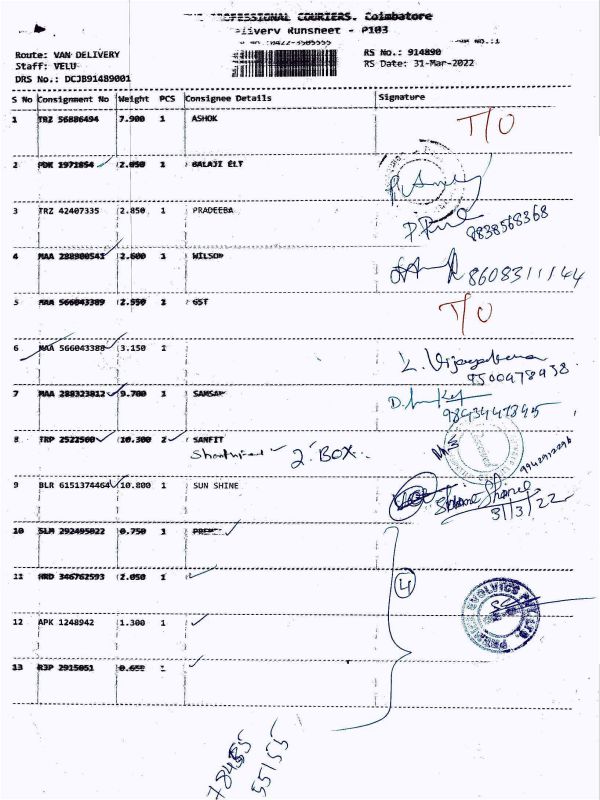 PROFESSIONAL COURIERS. Coimbatore
Runsheet - P103
Route: VAN DELIVERY
Staff: VELU
DRS No.: DCJB91489001
RS No.: 914890
RS Date: 31-Mar-2022
S No Consignment No Weight PCS Consignee Details Signature
1 TRZ 56886494 7.900 1 ASHOK T/O
2 PDK 1971854 2.050 1 BALAJI ELT
3 TRZ 42407335 2.850 1 PRADEEBA
9838568368
4 MAA 288900541 2.600 1 WILSON 8608311144
5 MAA 566043389 2.550 1 GST T/O
6 MAA 566043388 3.150 1
9500978938
7 MAA 288323812 9.700 1 SAMSAM
8 TRP 2522560 10.300 2 SANFIT
2 BOX
9 BLR 6151374464 10.800 1 SUN SHINE
31/3/22
10 SLM 292495022 0.750 1
11 HRD 346762593 2.050 1
4
12 APK 1248942 1.300 1
13 RJP 2915051
78455
55155